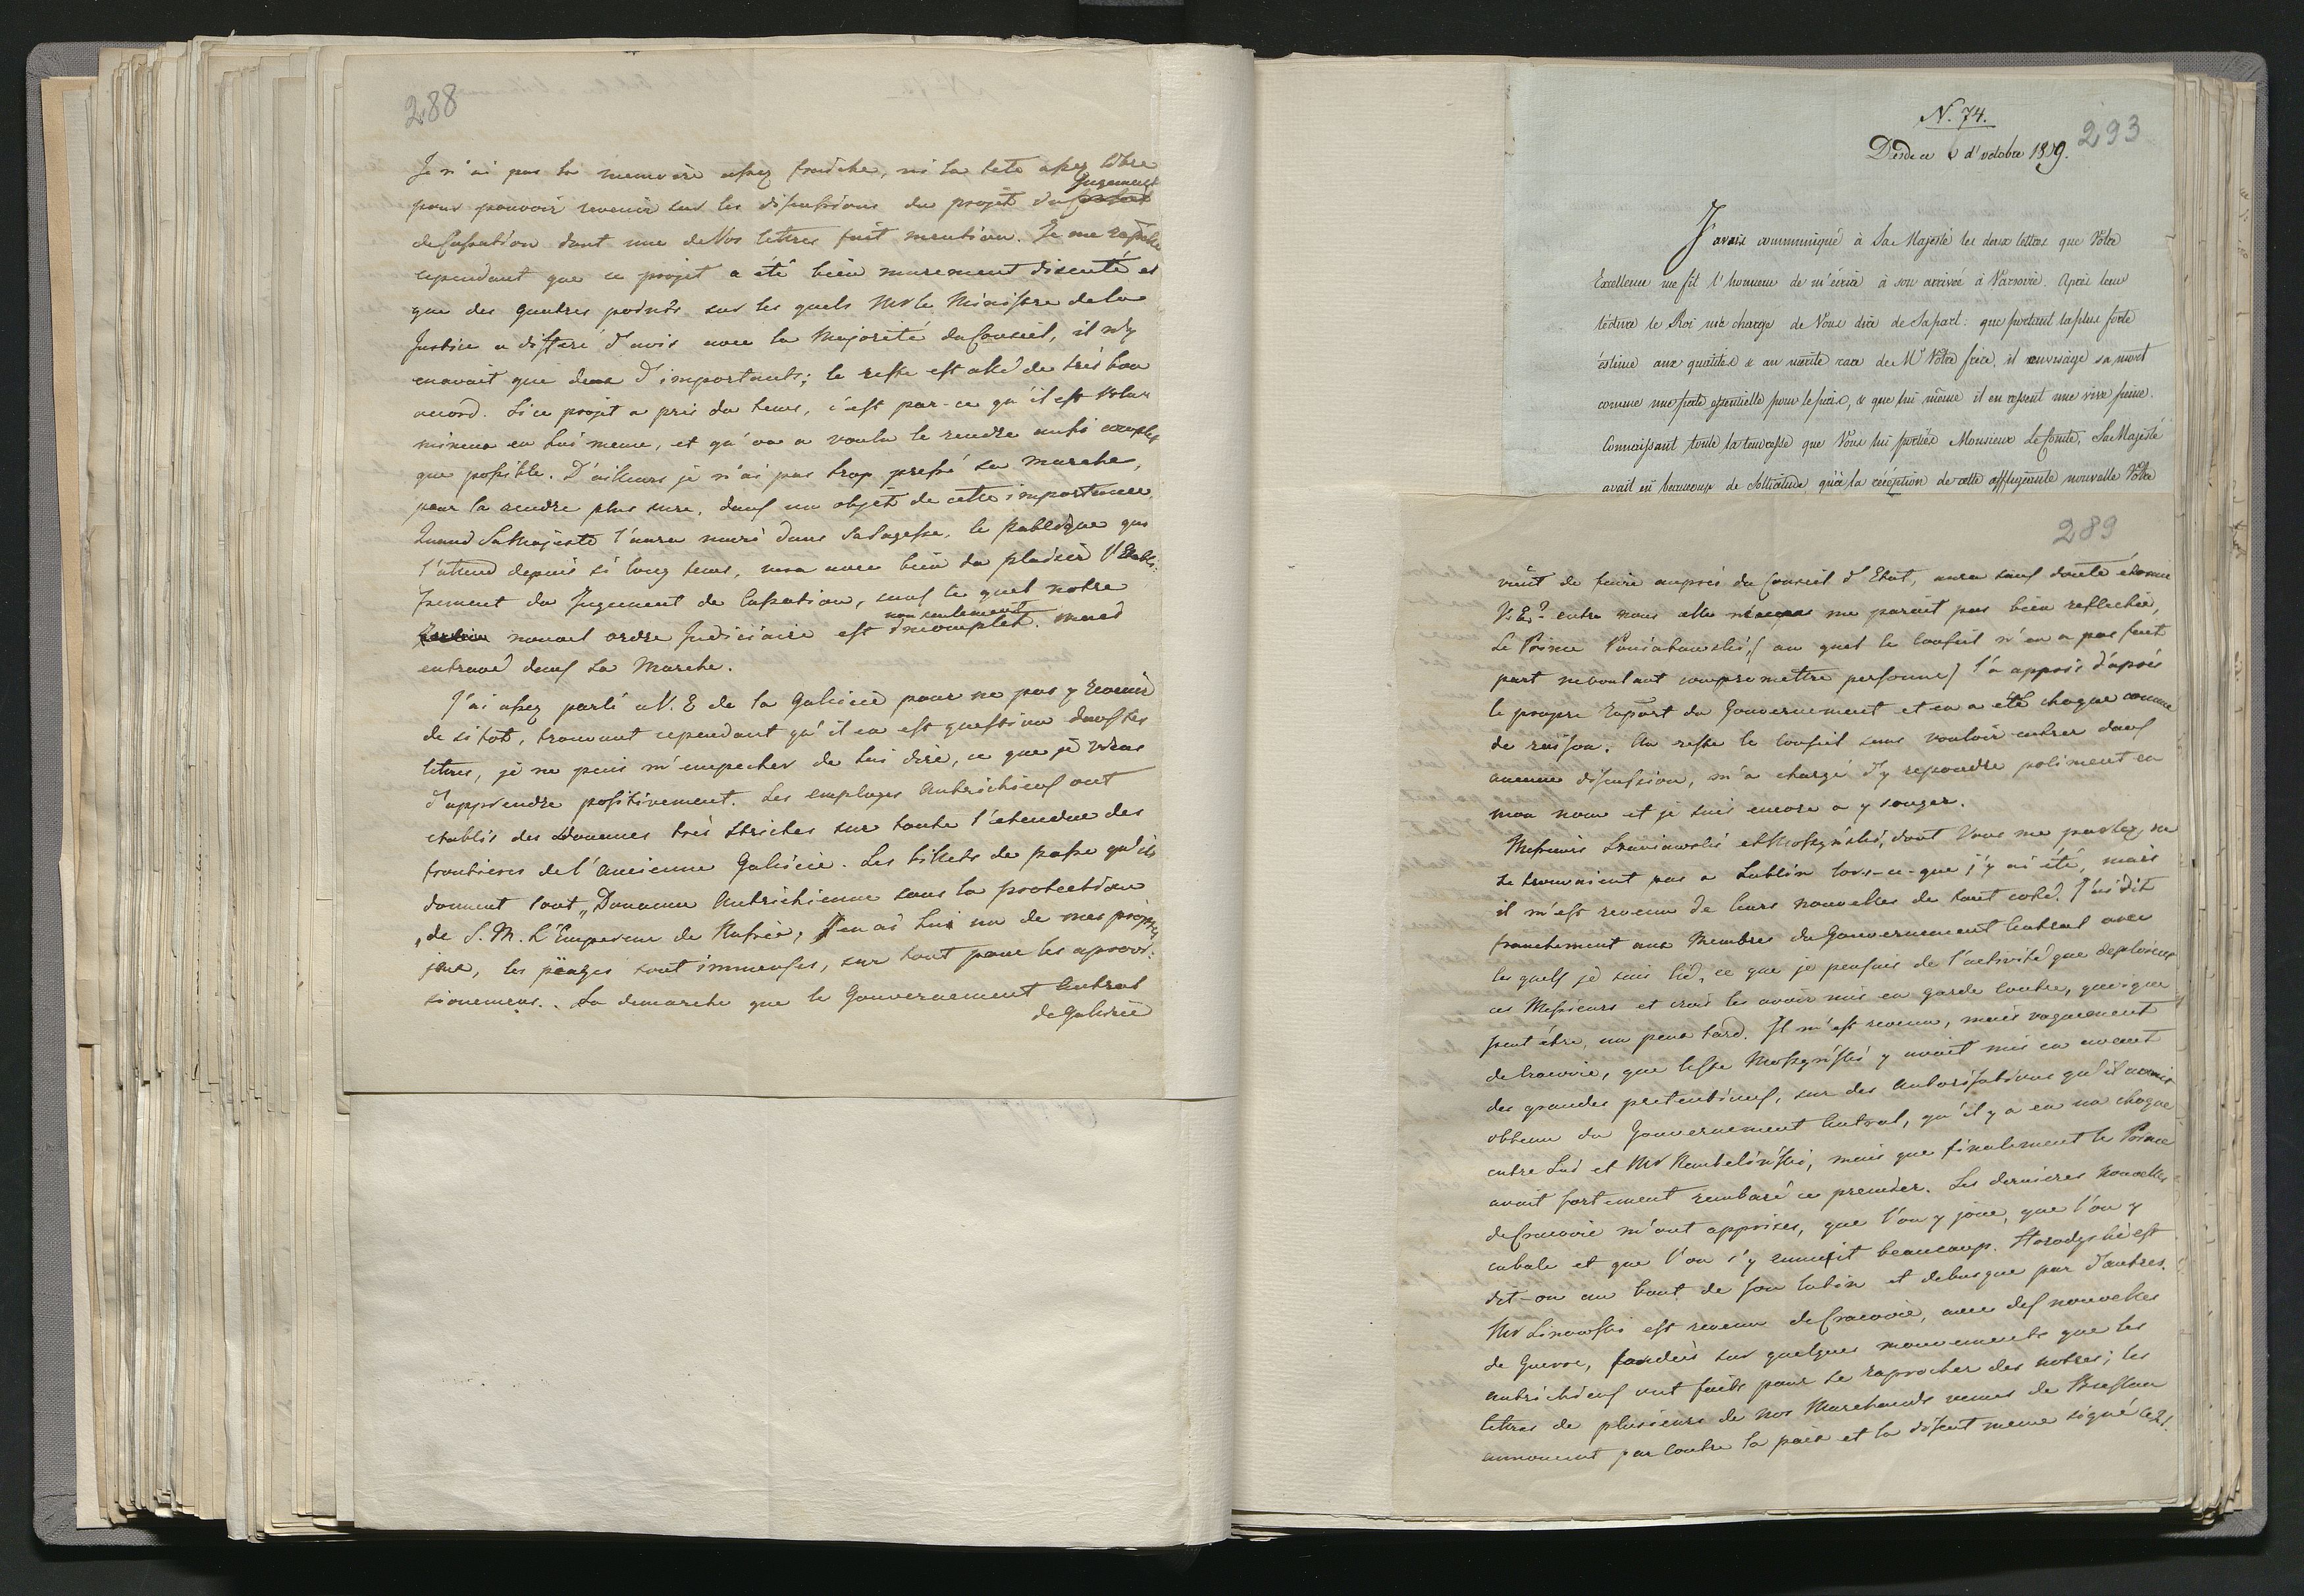 288
Je n'ai pas la memoire assez fraiche, ni la tete assez libre
pour pouvoir revenir sur les discussions du projet du Jugement
de Cassation dont une de Vos lettres fait mention. Je me rapelle
cependant que ce projet a été bien murement discuté et
que des quatres points sur les quels Mr le Ministre de la
Justice a differé d'avis avec la Majorité du Conseil, il n'y
enavait que deux d'importants; le reste est allé de très bon
accord. Si ce projet a pris du tems, c'est par-ce qu'il est volu-
mineux en lui meme, et qu'on a voulu le rendre aussi complet
que possible. D'ailleurs je n'ai pas trop pressé sa marche,
pour la rendre plus sure, dans un objet de cette importance.
Quand Sa Majesté l'aura muri dans Sa Sagesse, le publique qui
l'attend depuis si long tems, verra avec bien du plaisir l'Etablis-
sement du Jugement de Cassation, sans le quel notre
nouvel ordre Judiciaire est non seulement incomplet. mais
entravé dans sa Marche.
J'ai assez parlé a V. E de la Galicie pour ne pas y revenir
de sitot, trouvant cependant qu'il en est question dans ses
lettres, je ne puis m'empecher de lui dire, ce que je viens
d'apprendre positivement. Les employes Autrichiens ont
etablis des Douannes très strictes sur toute l'etendue des
frontieres de l'ancienne Galicie. Les billets de passe qu'ils
donnent sont „Douanne Autrichienne sous la protection
„de S. M. L'Empereur de Russie, J'en ai lui un de mes propres
jeux, les péages sont immenses, sur tout pour les aprovi-
sionemens. La demarche que le Gouvernement Central
de Galicie
N. 74.
293
Dresde ce 6 d'octobre 1809.
J'avais communiqué à Sa Majesté les deux lettres que Votre
Excellence me fit l'honneur de m'écrire à son arrivée à Varsovie. Après leur
lecture le Roi me charge de Vous dire de Sa part: que portant la plus forte
estime aux qualités & au mérite rare de Mr Votre frère, il envisage sa mort
comme une perte essentielle pour le païs, & que lui même il en ressent une vive peine.
Connaissant toute la tendresse que Vous lui portiés Monsieur Le Comte, Sa Majesté
avait eû beaucoup de sollicitude, qu'à la réception de cette affligeante nouvelle Votre
289
vient de faire auprès du Conseil d'Etat, aura sans doute étonné
V. E.? entre nous elle me parait pas bien reflechie,
Le Prince Poniatowski, (au quel le Conseil n'en a pas fait
part nevoulant compromettre personne) l'a appris d'après
le propre raport du Gouvernement et en a été choqué comme
de raison. Au reste le Conseil sans vouloir entrer dans
aucune discussion, m'a chargé d'y repondre poliment en
mon nom et je suis encore a y songer.
Messieurs Szaniawski et Moszyński, dont Vous me parlez, ne
se trouvaient pas a Lublin lors-ce-que j'y ai été, mais
il m'est revenu de leurs nouvelles de tout coté. J'ai dit
franchement aux Membres du Gouvernement Central avec
les quels je suis lié, ce que je pensais de l'activité que deploient
ces Messieurs et crois les avoir mis en garde contre, quoique
peut être, un peu tard. Il m'est revenu, mais vaguement
de Cracovie, que le Moszyński y avait mis en avant
des grandes pretentions, sur des autorisations qu'il avait
obtenu du Gouvernement Central, qu'il y a eu un choque
entre Lui et Mr Rembeliński, mais que finalement le Prince
avait fortement rembaré ce premier. Les dernieres nouvelles
de Cracovie m'ont apprises, que l'on y joue, que l'on y
cabale et que l'on s'y ennuit beaucoup. Horodyski est
dit-on au bout de son latin et debusqué par d'autres.
Mr Linowski est revenu de Cracovie, avec des nouvelles
de Guerre, fondées sur quelques mouvements que les
Autrichiens ont faits pour se raprocher des notres; les
lettres de plusieurs de nos Marchands venues de Breslau
annoncent par contre la paix et la disent meme signé